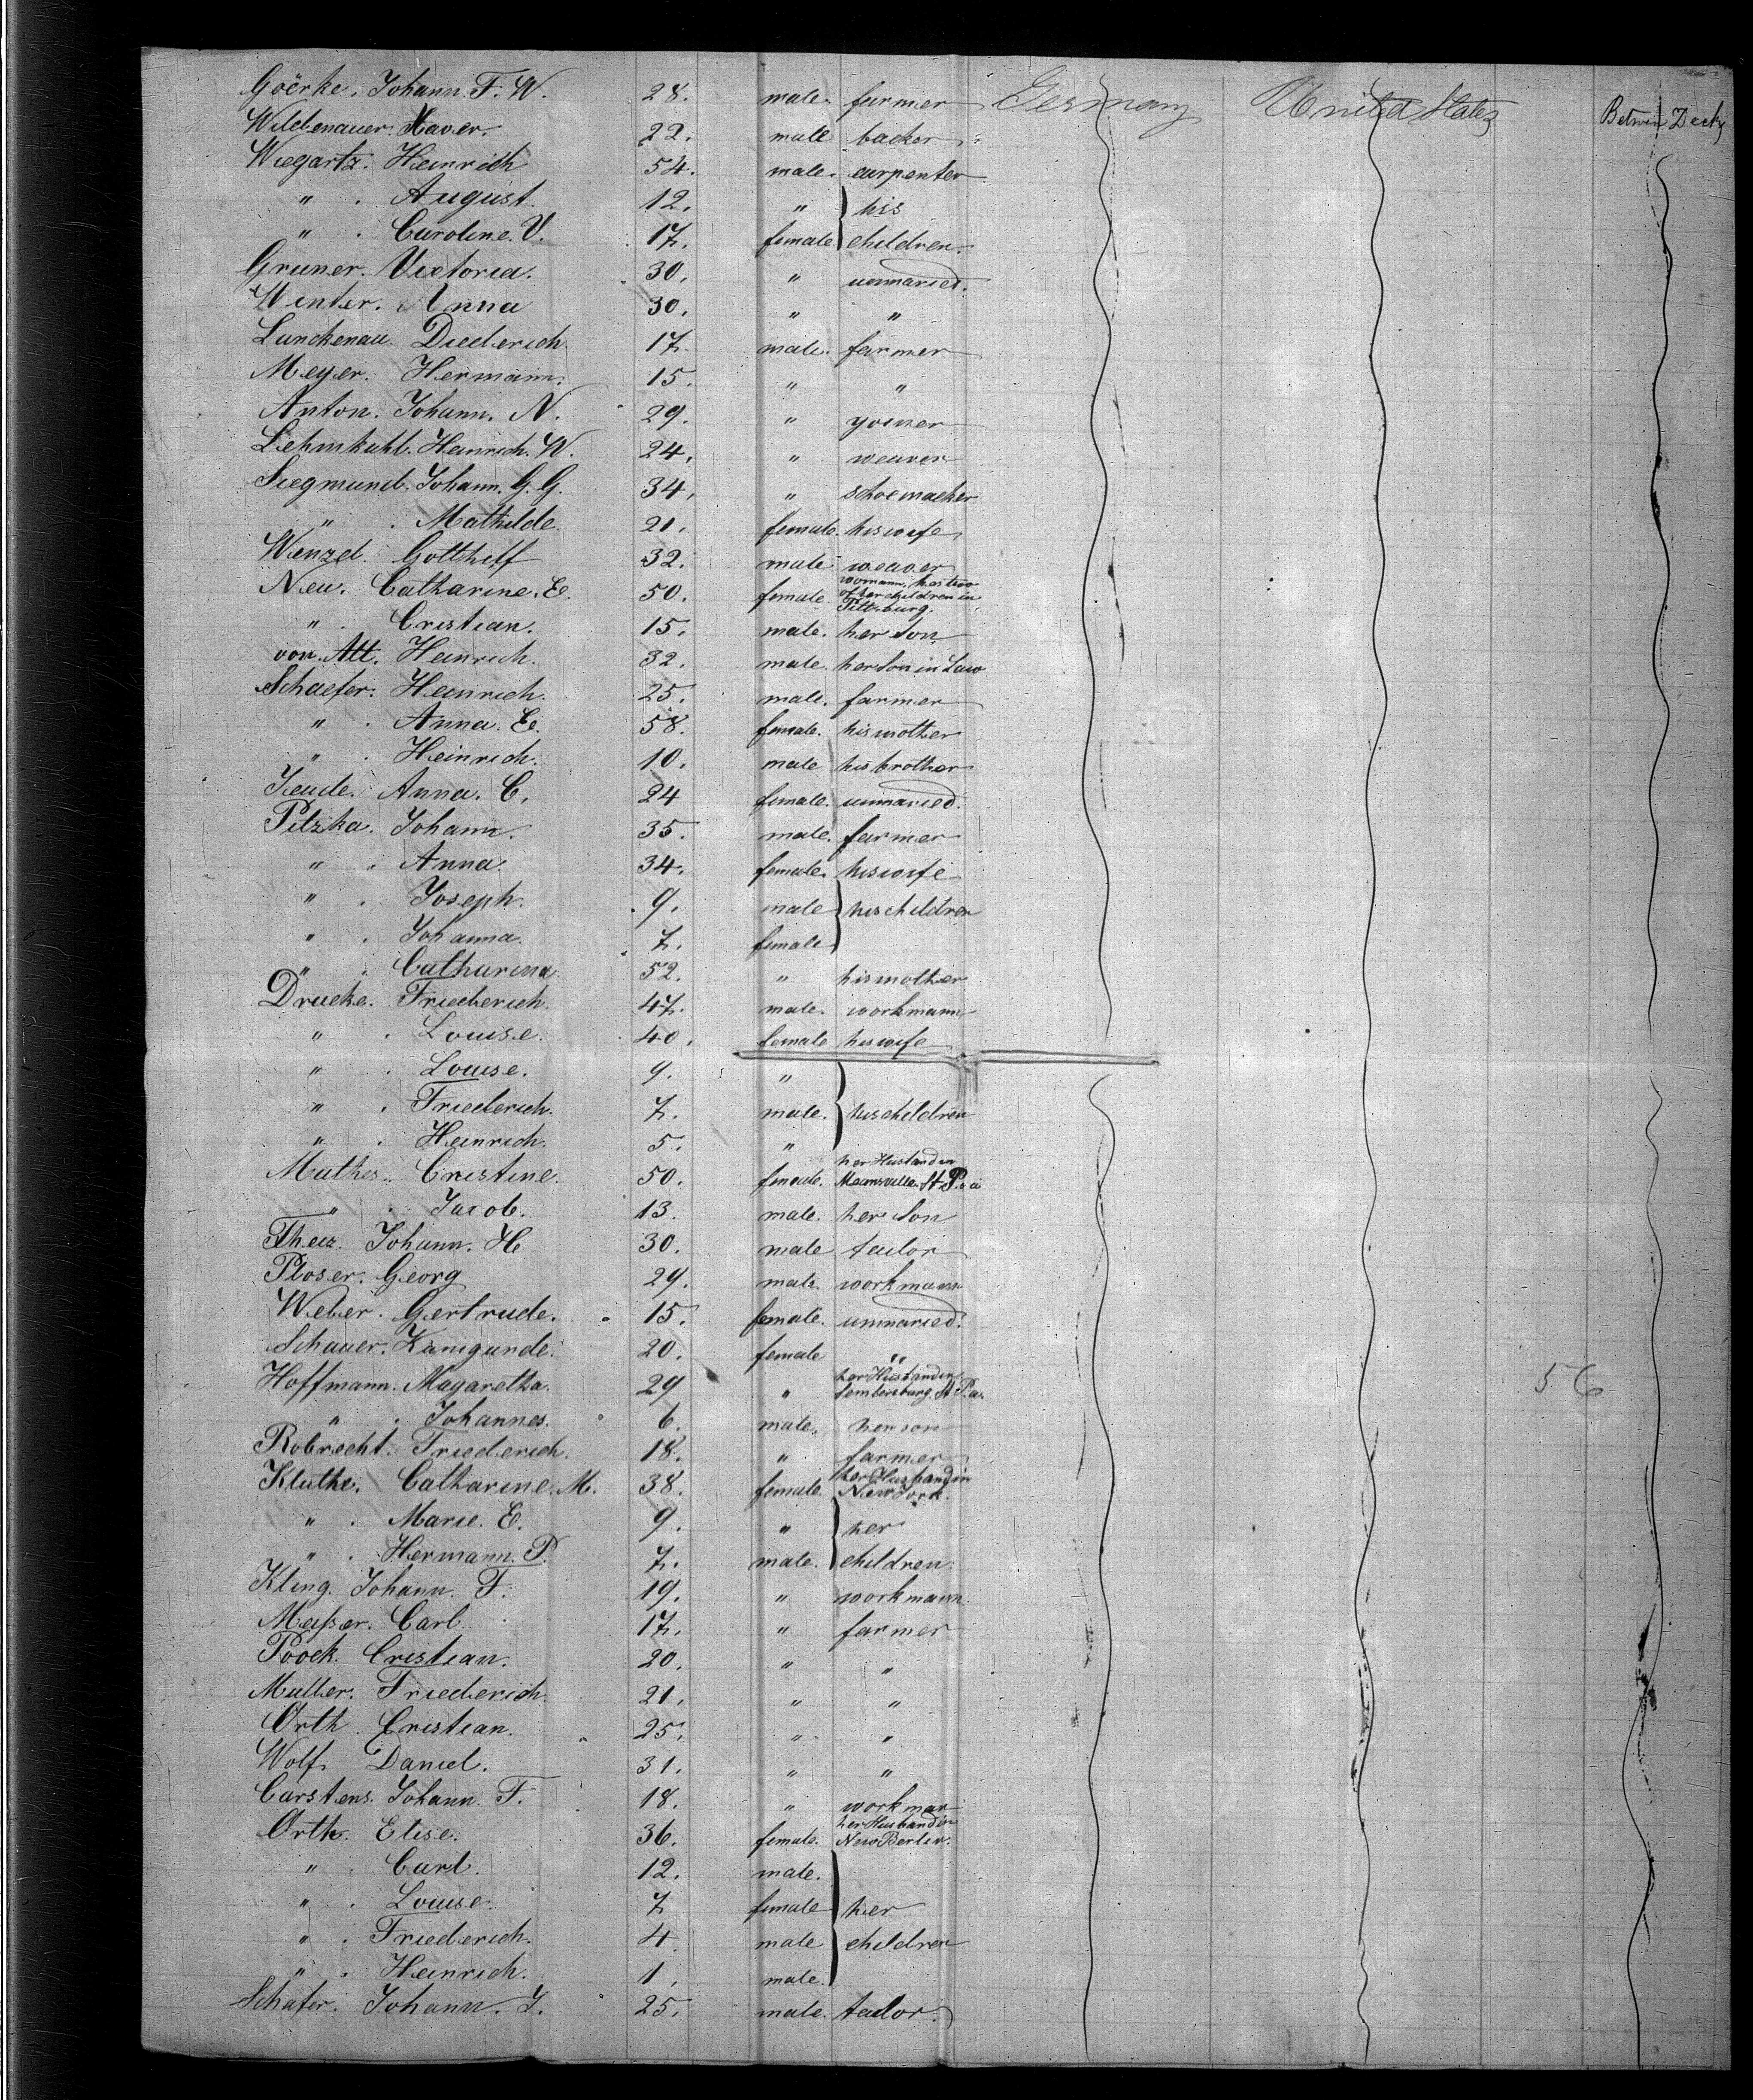 Goërke. Johann. F. W. 28. male. farmer Germany United States Betwen Decks
Wildenauer. Xaver. 22. male backer
Wiegartz. Heinrich 54. male. carpenter
" . August. 12. " } his
" . Caroline. V. 17. female children.
Gruner. Victoria. 30. " unmaried.
Winter. Anna 30. " "
Lunckenau. Diederich. 17. male. farmer
Meyer. Hermann. 15. " "
Anton. Johann. N. 29. " yoiner
Lehmkuhl. Heinrich. W. 24. " weaver
Siegmund. Johann. G. G. 34. " schoemacker
" . Mathilde. 21. female. his wife
Wenzel. Gotthilf 32. male weaver
Neu. Catharine. E. 50. female. womann, has two of her children in Pittsburg.
" . Cristian. 15. male. her Son
von Alt. Heinrich. 32. male. her Son in Law
Schaefer. Heinrich. 25. male. farmer
" . Anna. E. 58. female. his mother
" . Heinrich. 10. male his brother
Jeude. Anna. C. 24 female. unmaried.
Pitzka. Johann. 35. male. farmer
" . Anna. 34. female. his wife
" . Joseph. 9. male } his children
" . Johanna. 7. female
" . Catharina. 52. " his mother
Drucke. Friederich. 47. male. workmann
" . Louise. 40. female his wife
" . Louise. 9. "
" . Friederich. 7. male. } his children
" . Heinrich. 5. "
Mathes. Cristine. 50. female. her Husband in St. Pa
" . Jacob. 13. male. her Son
Theiz. Johann. H 30. male tailor
Ploser. Georg 29. male. workmann
Weber. Gertrude. 15. female. unmaried.
Schauer. Kunigunde. 20. female "
Hoffmann. Magaretha. 29 " her Husband in St. Pa.
" . Johannes. 6. male. her son
Robrecht. Friederich. 18. " farmer
Kluthe. Catharine. M. 38. female. her Husband in New York.
" . Marie. E. 9. " } her
" . Hermann. P. 7. male. children
Kling. Johann. F. 19. " workmann
Meißer. Carl. 17. " farmer
Poock. Cristian. 20. " "
Muller. Friederich. 21. " "
Orth. Cristian. 25. " "
Wolf. Daniel. 31. " "
Carstens. Johann. F. 18. " workman
Orth. Elise. 36. female. her Husband in New Berlin.
" . Carl. 12. male.
" . Louise. 7 female } her
" . Friederich. 4. male children
" . Heinrich. 1. male.
Schafer. Johann. J. 25. male. tailor.
56